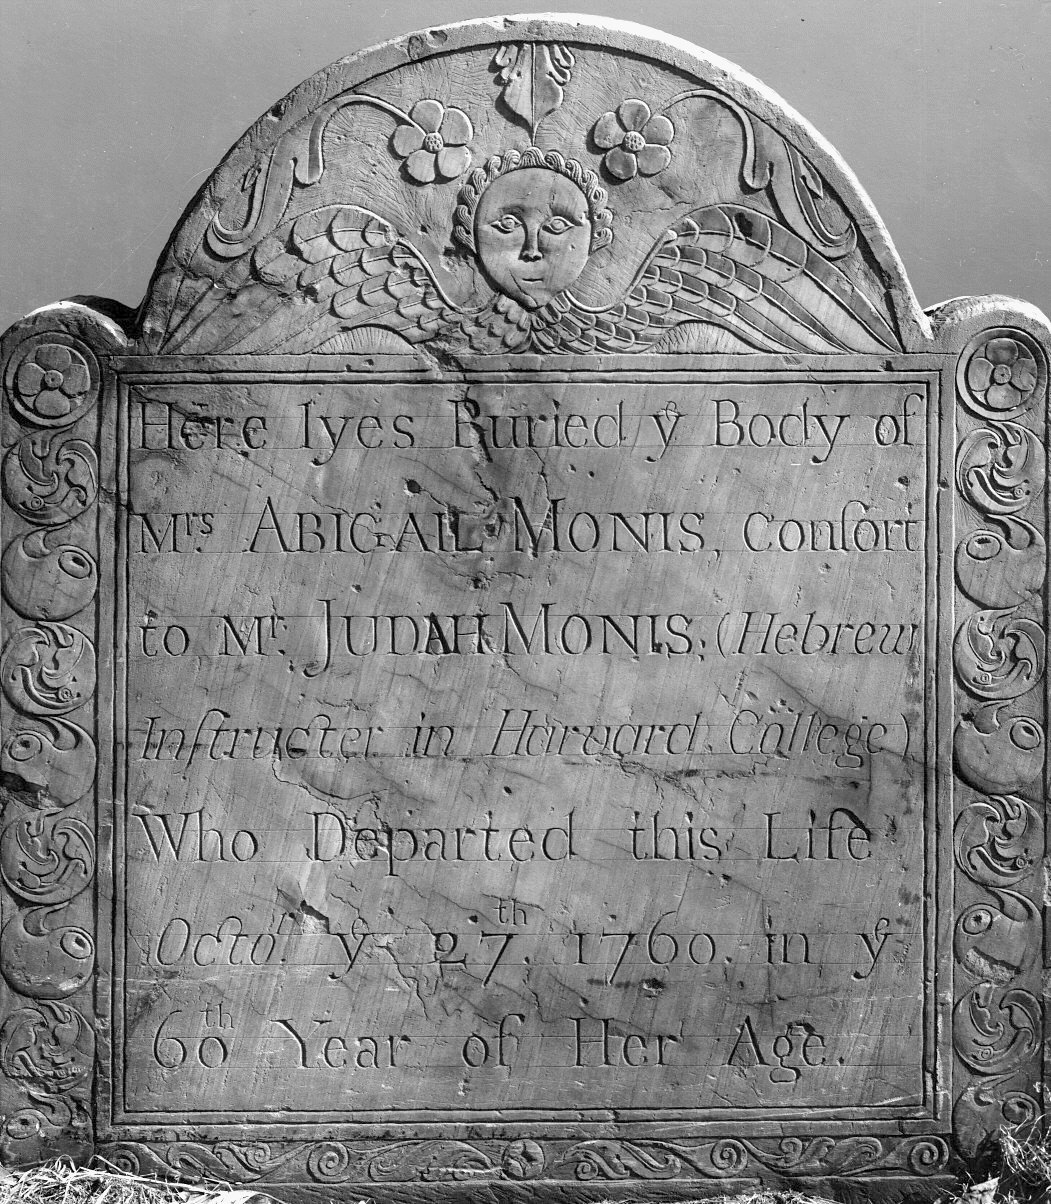 Here lyes Buried yͤ Body of
Mrs. ABIGAIL MONIS, Conſort
to Mr. JUDAH MONIS, (Hebrew
Inſtructer in Harvard College)
Who Departed this Life
Octor yͤ 27th 1760. in yͤ
60th Year of Her Age.